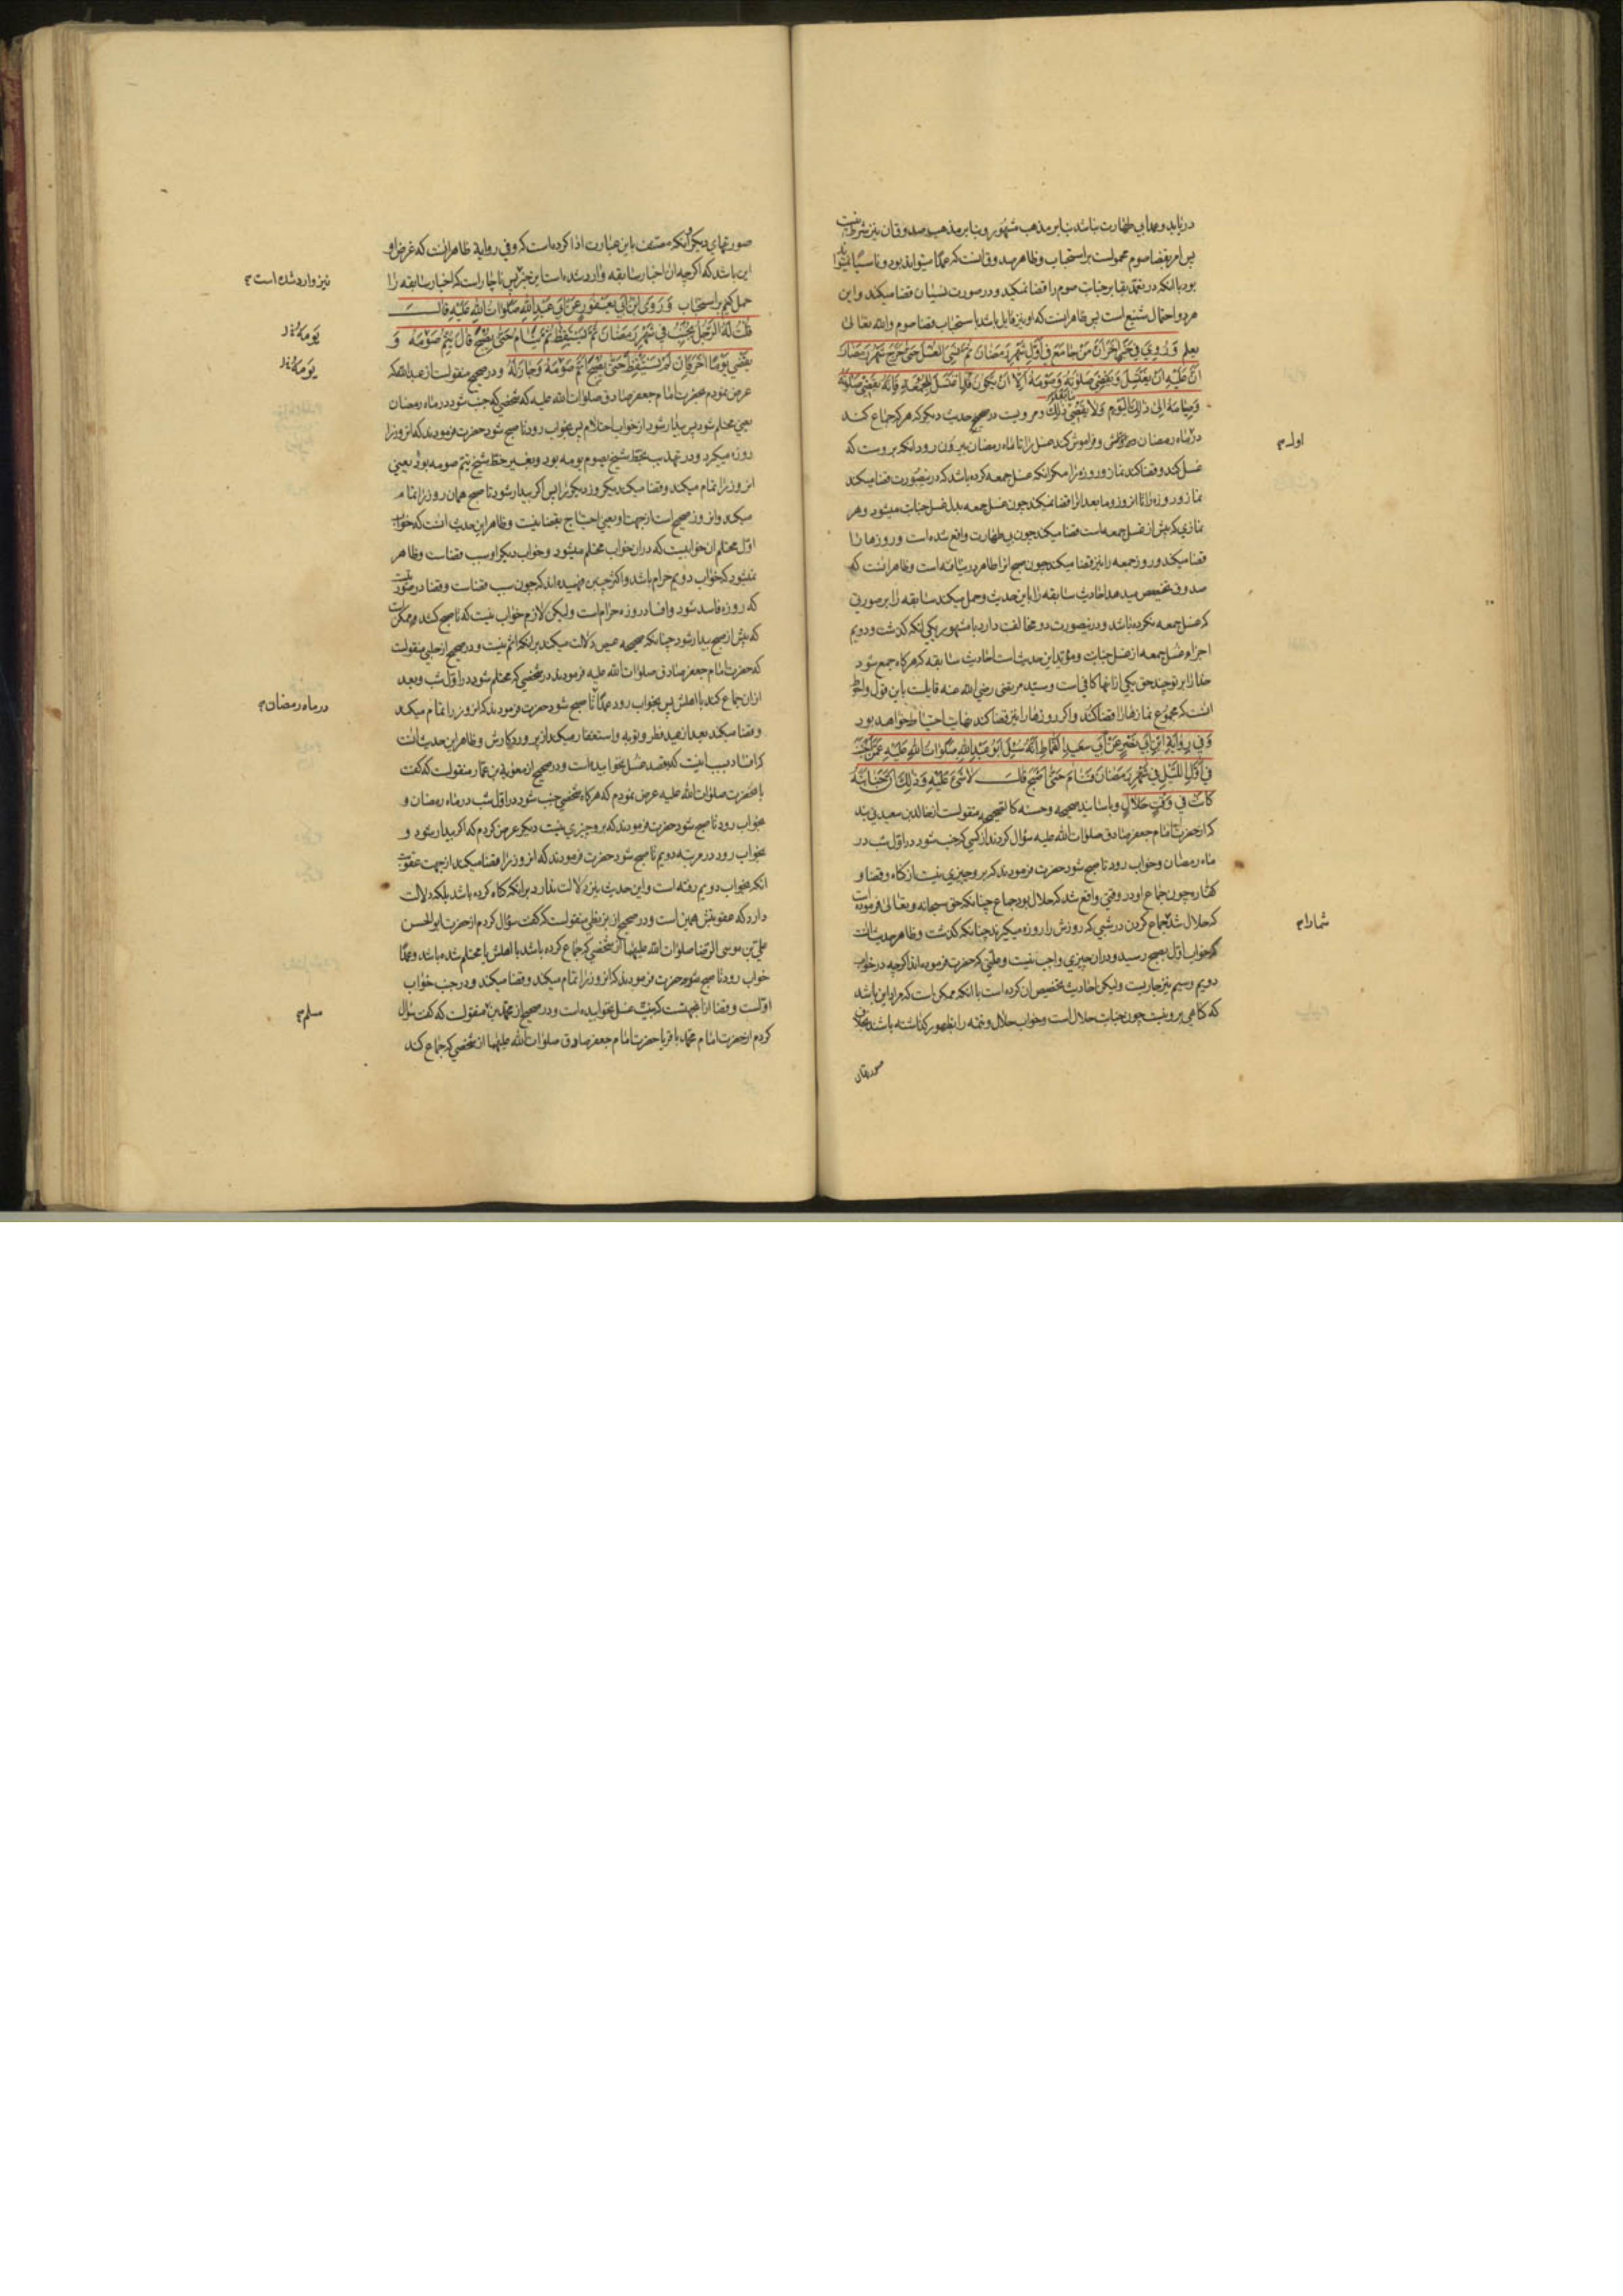 دریابد و عمدا بی طهارت نباشد بنا بر مذهب مشهور و بنا بر مذهب صدوقان نیز شرط نیست
پس امر بقضا صوم محمولست بر استحباب و ظاهر صدوق آنست که عمدا میتواند بود و ناسیا نمیتواند
بود با آنکه در تعمد بقا بر جنابت صوم را قضا نمیکند و در صورت نسیان قضا میکند و این
هر دو احتمال شنیع است پس ظاهر اینست که او نیز قایل باشد باستحباب قضا صوم والله تعالی
یعلم وَرُوِیَ فِی خَبَرٍ آخَرَ أَنَّ مَنْ جَامَعَ فِی أَوَّلِ شَهْرِ رَمَضَانَ ثُمَّ نَسِیَ الْغُسْلَ حَتَّی خَرَجَ شَهْرُ رَمَضَانَ
أَنَّ عَلَیْهِ أَنْ یَغْتَسِلَ وَ یَقْضِیَ صَلَوٰتَهُ وَ صَوْمَهُ إِلَّا أَنْ یَکُونَ قَدِ اغْتَسَلَ لِلْجُمُعَةِ فَإِنَّهُ یَقْضِی صَلَوٰتَهُ
وَصِیَامَهُ إِلَی ذٰلِكَ الْیَوْمِ وَلَا یَقْضِی ذٰلِكَ و مرویست در صحیح حدیث دیگر که هر که جماع کند
در ماه رمضان و فراموش کند غسل را تا ماه رمضان بیرون رود آنکه بروست که
غسل کند و قضا کند نماز و روزه را مگر آنکه غسل جمعه کرده باشد که درینصورت قضا میکند
نماز و روزه را تا آن روز و ما بعد آنرا قضا نمیکند چون غسل جمعه بدل غسل جنابت میشود و هر
نمازی که پیش از غسل جمعه است قضا میکند چون بی طهارت واقع شده است و روزها را
قضا میکند و روز جمعه را نیز قضا میکند چون صبح آنرا طاهر در نیافته است و ظاهر آنست که
صدوق تخصیص میدهد احادیث سابقه را باین حدیث و حمل میکند سابقه را بر صورتی
که غسل جمعه نکرده باشد و درینصورت دو مخالفت دارد با مشهور یکی آنکه گذشت و دویم
اجزاء غسل جمعه از غسل جنابت و مؤید این حدیث است احادیث سابقه که هرگاه جمع شود
خدا را بر تو چند حق یکی از آنها کافی است و سید مرتضی رضی الله عنه قایلست باین قول و احوط
آنست که مجموع نمازها را قضا کند و اگر روزها را نیز قضا کند نهایت احتیاط خواهد بود
وَفِی رِوَایَةِ ابْنِ أَبِی نَصْرٍ عَنْ أَبِی سَعِیدٍ الْقَمَّاطِ أَنَّهُ سُئِلَ أَبُو عَبْدِ اللهِ صَلَوَاتُ اللهِ عَلَیْهِ عَمَّنْ أَجْنَبَ
فِی أَوَّلِ اللَّیْلِ فِی شَهْرِ رَمَضَانَ فَنَامَ حَتَّی أَصْبَحَ قَالَ لَا شَیْءَ عَلَیْهِ وَ ذٰلِكَ أَنَّ جَنَابَتَهُ
کَانَتْ فِی وَقْتٍ حَلَالٍ و باسانید صحیحه و حسنه کالصحیحه منقولست از خالد بن سعید بی ید
که از حضرت امام جعفر صادق صلوات الله علیه سؤال کردند از کسی که جنب شود در اول شب در
ماه رمضان و خواب رود تا صبح شود حضرت فرمودند که برو چیزی نیست از گناه و قضا و
کفاره چون جماع او در وقتی واقع شد که حلال بود جماع چنانکه حق سبحانه و تعالی فرموده است
که حلال شد جماع کردن در شبی که روزش را روزه میگیرند چنانکه گذشت و ظاهر حدیث آنست
که خواب اول بصبح رسید و در آن چیزی واجب نیست و علتی که حضرت فرموده اند اگر چه در خواب
دویم و سیم نیز جاریست ولیکن احادیث تخصیص آن کرده است با آنکه ممکن است که مراد این باشد
که گاهی برو نیست چون جنابت حلال است و خواب حلال و تتمه را بظهور گذاشته باشند
صورتهای
اول م
شما را م
صورتهای دیگر آنکه مصنف باین عبارت ادا کرده است که وفی روایة ظاهر آنست که غرض او
این باشد که اگر چه آن اخبار سابقه وارد شده است این خبر پس ناچار است که اخبار سابقه را
حمل کنیم بر استحباب وَ رَوَی ابْنُ أَبِی یَعْفُورٍ عَنْ أَبِی عَبْدِ اللهِ صَلَوَاتُ اللهِ عَلَیْهِ قَالَ
قُلْتُ لَهُ الرَّجُلُ یُجْنِبُ فِی شَهْرِ رَمَضَانَ ثُمَّ یَسْتَیْقِظُ ثُمَّ یَنَامُ حَتَّی یُصْبِحَ قَالَ یُتِمُّ صَوْمَهُ وَ
یَقْضِی یَوْمًا آخَرَ فَإِنْ لَمْ یَسْتَیْقِظْ حَتَّی یُصْبِحَ أَتَمَّ صَوْمَهُ وَ جَازَ لَهُ و در صحیح منقولست از عبدالله که
عرض نمودم بحضرت امام جعفر صادق صلوات الله علیه که شخصی که جنب شود در ماه رمضان
یعنی محتلم شود پس بیدار شود از خواب احتلام پس بخواب رود تا صبح شود حضرت فرمودند که آنروز را
روزه میگیرد و در تهذیب بخط شیخ بصوم یومه بود و بغیر خط شیخ یتم صومه بود یعنی
آنروز را تمام میکند و قضا میکند یکروز دیگر را پس اگر بیدار نشود تا صبح همان روز را تمام
میکند و آنروز صحیح است از جهت او یعنی احتیاج بقضا نیست و ظاهر این حدیث آنست که خواب
اول محتلم آن خوابیست که در آن خواب محتلم میشود و خواب دیگر او سبب قضاست و ظاهر
نمیشود که خواب دویم حرام باشد و اکثر چنین فهمیده اند که چون سبب قضاست و قضا در صورتیست
که روزه فاسد شود و افساد روزه حرام است ولیکن لازم خواب نیست که تا صبح کشد و ممکن است
که پیش از صبح بیدار شود چنانکه صحیحه عیص دلالت میکند بر آنکه اثم نیست و در صحیح از حلبی منقولست
که حضرت امام جعفر صادق صلوات الله علیه فرمودند در شخصی که محتلم شود در اول شب و بعد
از آن جماع کند با اهلش پس بخواب رود عمدا تا صبح شود حضرت فرمودند که آنروز را تمام میکند
و قضا میکند بعد از عید فطر و توبه و استغفار میکند از پروردگارش و ظاهر این حدیث آنست
که افساد بسبب اینست که بقصد غسل نخوابیده است و در صحیح از معویة بن عمار منقولست که گفت
بآنحضرت صلوات الله علیه عرض نمودم که هرگاه شخصی جنب شود در اول شب در ماه رمضان و
بخواب رود تا صبح شود حضرت فرمودند که برو چیزی نیست دیگر عرض کردم که اگر بیدار شود و
بخواب رود در مرتبه دویم تا صبح شود حضرت فرمودند که آنروز را قضا میکند از جهت عقوبت
آنکه بخواب دویم رفته است و این حدیث نیز دلالت ندارد بر آنکه گناه کرده باشد بلکه دلالت
دارد که عقوبتش همین است و در صحیح از بزنطی منقولست که گفت سؤال کردم از حضرت ابوالحسن
علی بن موسی الرضا صلوات الله علیهما از شخصی که جماع کرده باشد با اهلش یا محتلم شده باشد و عمدا
خواب رود تا صبح شود حضرت فرمودند که آنروز را تمام میکند و قضا میکند و در جنب خواب
اولست و قضا از اینجهتست که بنیت غسل نخوابیده است و در صحیح از محمد بن منقولست که گفت سؤال
کردم از حضرت امام محمد باقر یا حضرت امام جعفر صادق صلوات الله علیهما از شخصی که جماع کند
نیز وارد شده است م
یَوْمَهُ خ ل
یَوْمَهُ خ ل
در ماه رمضان م
مسلم م